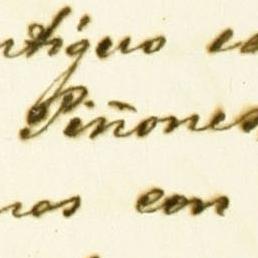 ntiguo ca
Piñones,
ros con